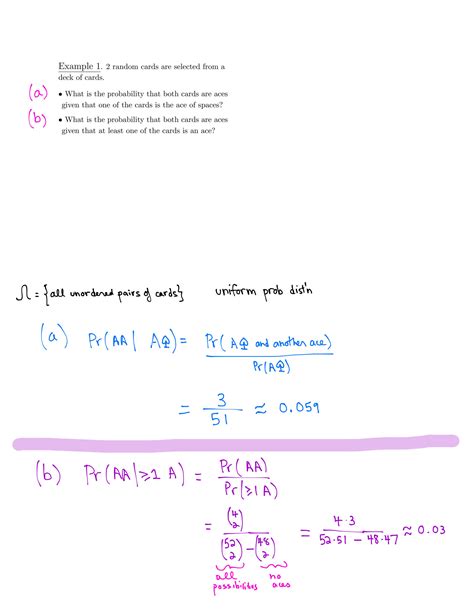 Example 1. 2 random cards are selected from a
deck of cards.
(a) • What is the probability that both cards are aces
given that one of the cards is the ace of spaces?
(b) • What is the probability that both cards are aces
given that at least one of the cards is an ace?
Ω = {all unordered pairs of cards} uniform prob dist'n
(a) Pr(AA | A♠) = Pr(A♠ and another ace) / Pr(A♠)
= 3/51 ≈ 0.059
(b) Pr(AA | ≥1 A) = Pr(AA) / Pr(≥1 A)
= (4 2) / (52 2) − (48 2) = 4·3 / 52·51 − 48·47 ≈ 0.03
all possibilites no aces